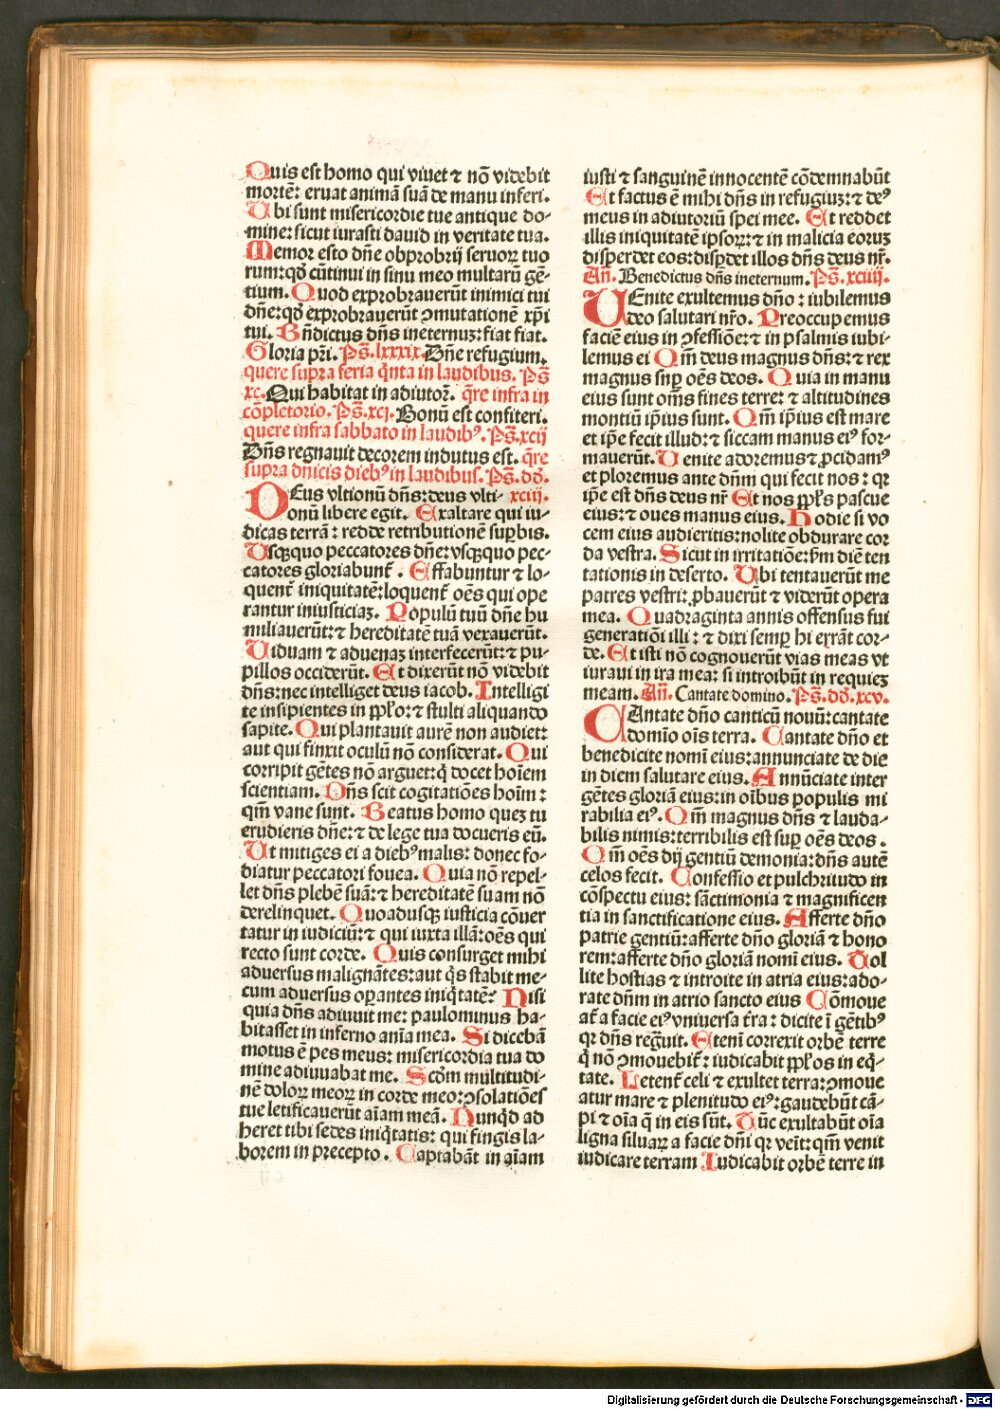 Quis est homo qui viuet ⁊ nō videbit
mortē: eruat animā suā de manu inferi.
Ubi sunt misericordie tue antique do-
mine: sicut iurasti dauid in veritate tua.
Memor esto dn̄e obprobrij seruoꝝ tuo
rum: qđ cūtinui in sinu meo multarū gē-
tium. Quod exprobrauerūt inimici tui
dn̄e: qđ exprobrauerūt ꝯmutationē xp̄i
tui. Bn̄dictus dn̄s ineternuʒ: fiat fiat.
Gloria pr̄i. Ps̄. lxxxix. Dn̄e refugium.
quere supra feria q̄nta in laudibus. Ps̄
xc. Qui habitat in adiutor̄. q̄re infra in
cōpletorio. Ps̄. xcj. Bonū est confiteri.
quere infra sabbato in laudibꝰ. Ps̄. xcij
Dn̄s regnauit decorem indutus est. q̄re
supra dn̄icis diebꝰ in laudibus. Ps̄. dd̄.
DEus vltionū dn̄s: deus vlti- xciij.
onū libere egit. Exaltare qui iu-
dicas terrā: redde retributionē suꝑbis.
Usqꝫquo peccatores dn̄e: vsqꝫquo pec-
catores gloriabunt̄. Effabuntur ⁊ lo-
quent̄ iniquitatē: loquent̄ oēs qui ope
rantur iniusticiaʒ. Populū tuū dn̄e hu
miliauerūt: ⁊ hereditatē tuā vexauerūt.
Uiduam ⁊ aduenaʒ interfecerūt: ⁊ pu-
pillos occiderūt. Et dixerūt nō videbit
dn̄s: nec intelliget deus iacob. Intelligi
te insipientes in pp̄lo: ⁊ stulti aliquando
sapite. Qui plantauit aurē non audiet:
aut qui finxit oculū nō considerat. Qui
corripit gētes nō arguet: q̄ docet hoīem
scientiam. Dn̄s scit cogitatiōes hoīm:
qm̄ vane sunt. Beatus homo queʒ tu
erudieris dn̄e: ⁊ de lege tua docueris eū.
Ut mitiges ei a diebꝰ malis: donec fo-
diatur peccatori fouea. Quia nō repel-
let dn̄s plebē suā: ⁊ hereditatē suam nō
derelinquet. Quoadusqꝫ iusticia cōuer
tatur in iudiciū: ⁊ qui iuxta illā: oēs qui
recto sunt corde. Quis consurget mihi
aduersus malignātes: aut q̄s stabit me-
cum aduersus oꝑantes iniq̄tatē? Nisi
quia dn̄s adiuuit me: paulominus ha-
bitasset in inferno aīa mea. Si dicebā
motus ē pes meus: misericordia tua do
mine adiuuabat me. Scd̄m multitudi-
nē doloꝝ meoꝝ in corde meo: ꝯsolatiōes
tue letificauerūt aīam meā. Nunqd̄ ad
heret tibi sedes iniq̄tatis: qui fingis la-
borem in precepto. Captabāt in aīam
iusti ⁊ sanguinē innocentē cōdemnabūt
Et factus ē mihi dn̄s in refugiuʒ: ⁊ deꝰ
meus in adiutoriū spei mee. Et reddet
illis iniquitatē ipsoꝝ: ⁊ in malicia eoruʒ
disperdet eos: disꝑdet illos dn̄s deus nr̄.
An̄. Benedictus dn̄s ineternum. Ps̄. xciiij.
UEnite exultemus dn̄o: iubilemus
deo salutari nr̄o. Preoccupemus
faciē eius in ꝯfessiōe: ⁊ in psalmis iubi-
lemus ei Qm̄ deus magnus dn̄s: ⁊ rex
magnus suꝑ oēs deos. Quia in manu
eius sunt om̄s fines terre: ⁊ altitudines
montiū ip̄ius sunt. Qm̄ ip̄ius est mare
et ip̄e fecit illud: ⁊ siccam manus eiꝰ for-
mauerūt. Uenite adoremus ⁊ ꝓcidamꝰ
et ploremus ante dn̄m qui fecit nos: qꝛ
ip̄e est dn̄s deus nr̄ Et nos pp̄ls pascue
eius: ⁊ oues manus eius. Hodie si vo
cem eius audieritis: nolite obdurare cor
da vestra. Sicut in irritatiōe: ẜm diē ten
tationis in deserto. Ubi tentauerūt me
patres vestri: ꝓbauerūt ⁊ viderūt opera
mea. Quadraginta annis offensus fui
generatiōi illi: ⁊ dixi semꝑ hi errāt cor-
de. Et isti nō cognouerūt vias meas vt
iuraui in ira mea: si introibūt in requieʒ
meam. An̄. Cantate domino. Ps̄. dd̄. xcv.
CAntate dn̄o canticū nouū: cantate
domio oīs terra. Cantate dn̄o et
benedicite nomī eius: annunciate de die
in diem salutare eius. Annūciate inter
gētes gloriā eius: in oībus populis mi
rabilia eiꝰ. Qm̄ magnus dn̄s ⁊ lauda-
bilis nimis: terribilis est suꝑ oēs deos.
Qm̄ oēs dij gentiū demonia: dn̄s autē
celos fecit. Confessio et pulchritudo in
cōspectu eius: sāctimonia ⁊ magnificen
tia in sanctificatione eius. Afferte dn̄o
patrie gentiū: afferte dn̄o gloriā ⁊ hono
rem: afferte dn̄o gloriā nomī eius. Tol
lite hostias ⁊ introite in atria eius: ado-
rate dn̄m in atrio sancto eius Cōmoue
at̄ a facie eiꝰ vniuersa t̄ra: dicite ī gētibꝰ
qꝛ dn̄s regūit. Etenī correxit orbē terre
q̄ nō ꝯmouebit̄: iudicabit pp̄los in eq̄-
tate. Letent̄ celi ⁊ exultet terra: ꝯmoue
atur mare ⁊ plenitudo eiꝰ: gaudebūt cā-
pi ⁊ oīa q̄ in eis sūt. Tūc exultabūt oīa
ligna siluaꝝ a facie dn̄i qꝛ veīt: qm̄ venit
iudicare terram Iudicabit orbē terre in
Digitalisierung gefördert durch die Deutsche Forschungsgemeinschaft - DFG